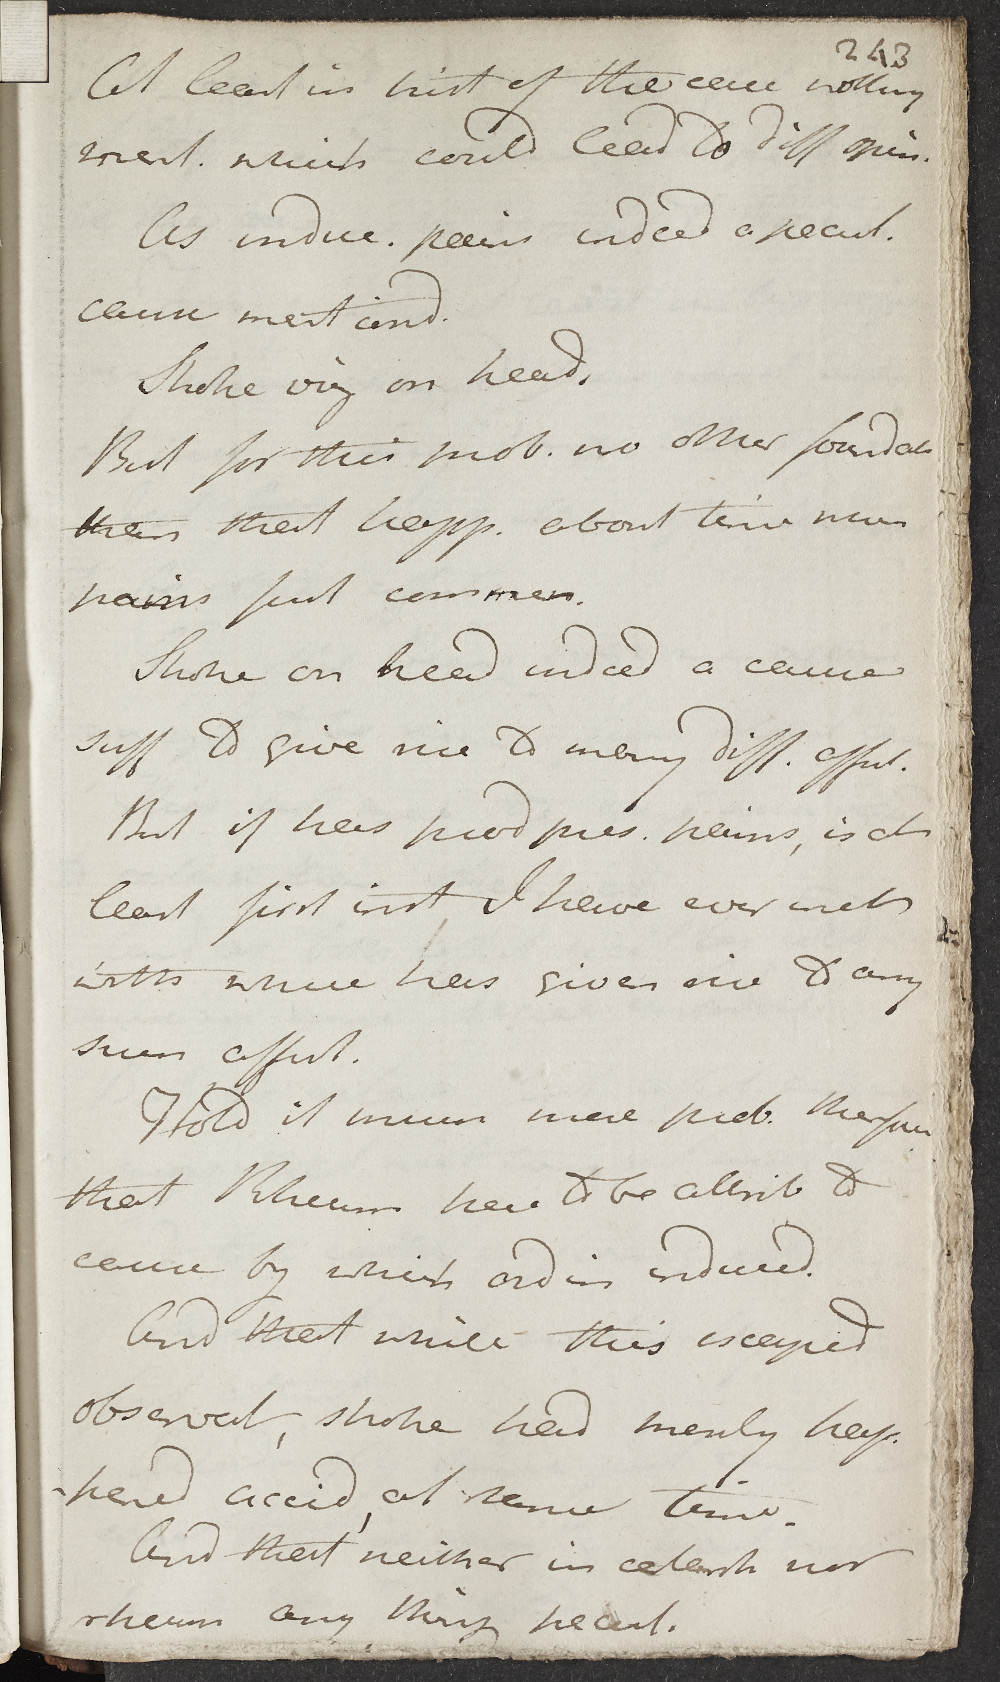 243
At least in hist of the case nothing
ment. which could lead to diff opin.
As induc. pains indeed a pecul.
cause mentiond.
Stroke viz on head.
But for this prob. no other foundat
than that happ. about time when
pains first commen.
Stroke on head indeed a cause
suff to give rise to many diff. effect.
But if has prod pres. pains, is at
least first inst I have ever met
with where has given rise to any
such effect.
Hold it much more prob. therefore
that Rheum here to be attrib to
cause by which ordin induced.
And that while this escaped
observat, stroke head merely hap-
pened accid, at same time.
And that neither in catarrh nor
rheum any thing pecul.